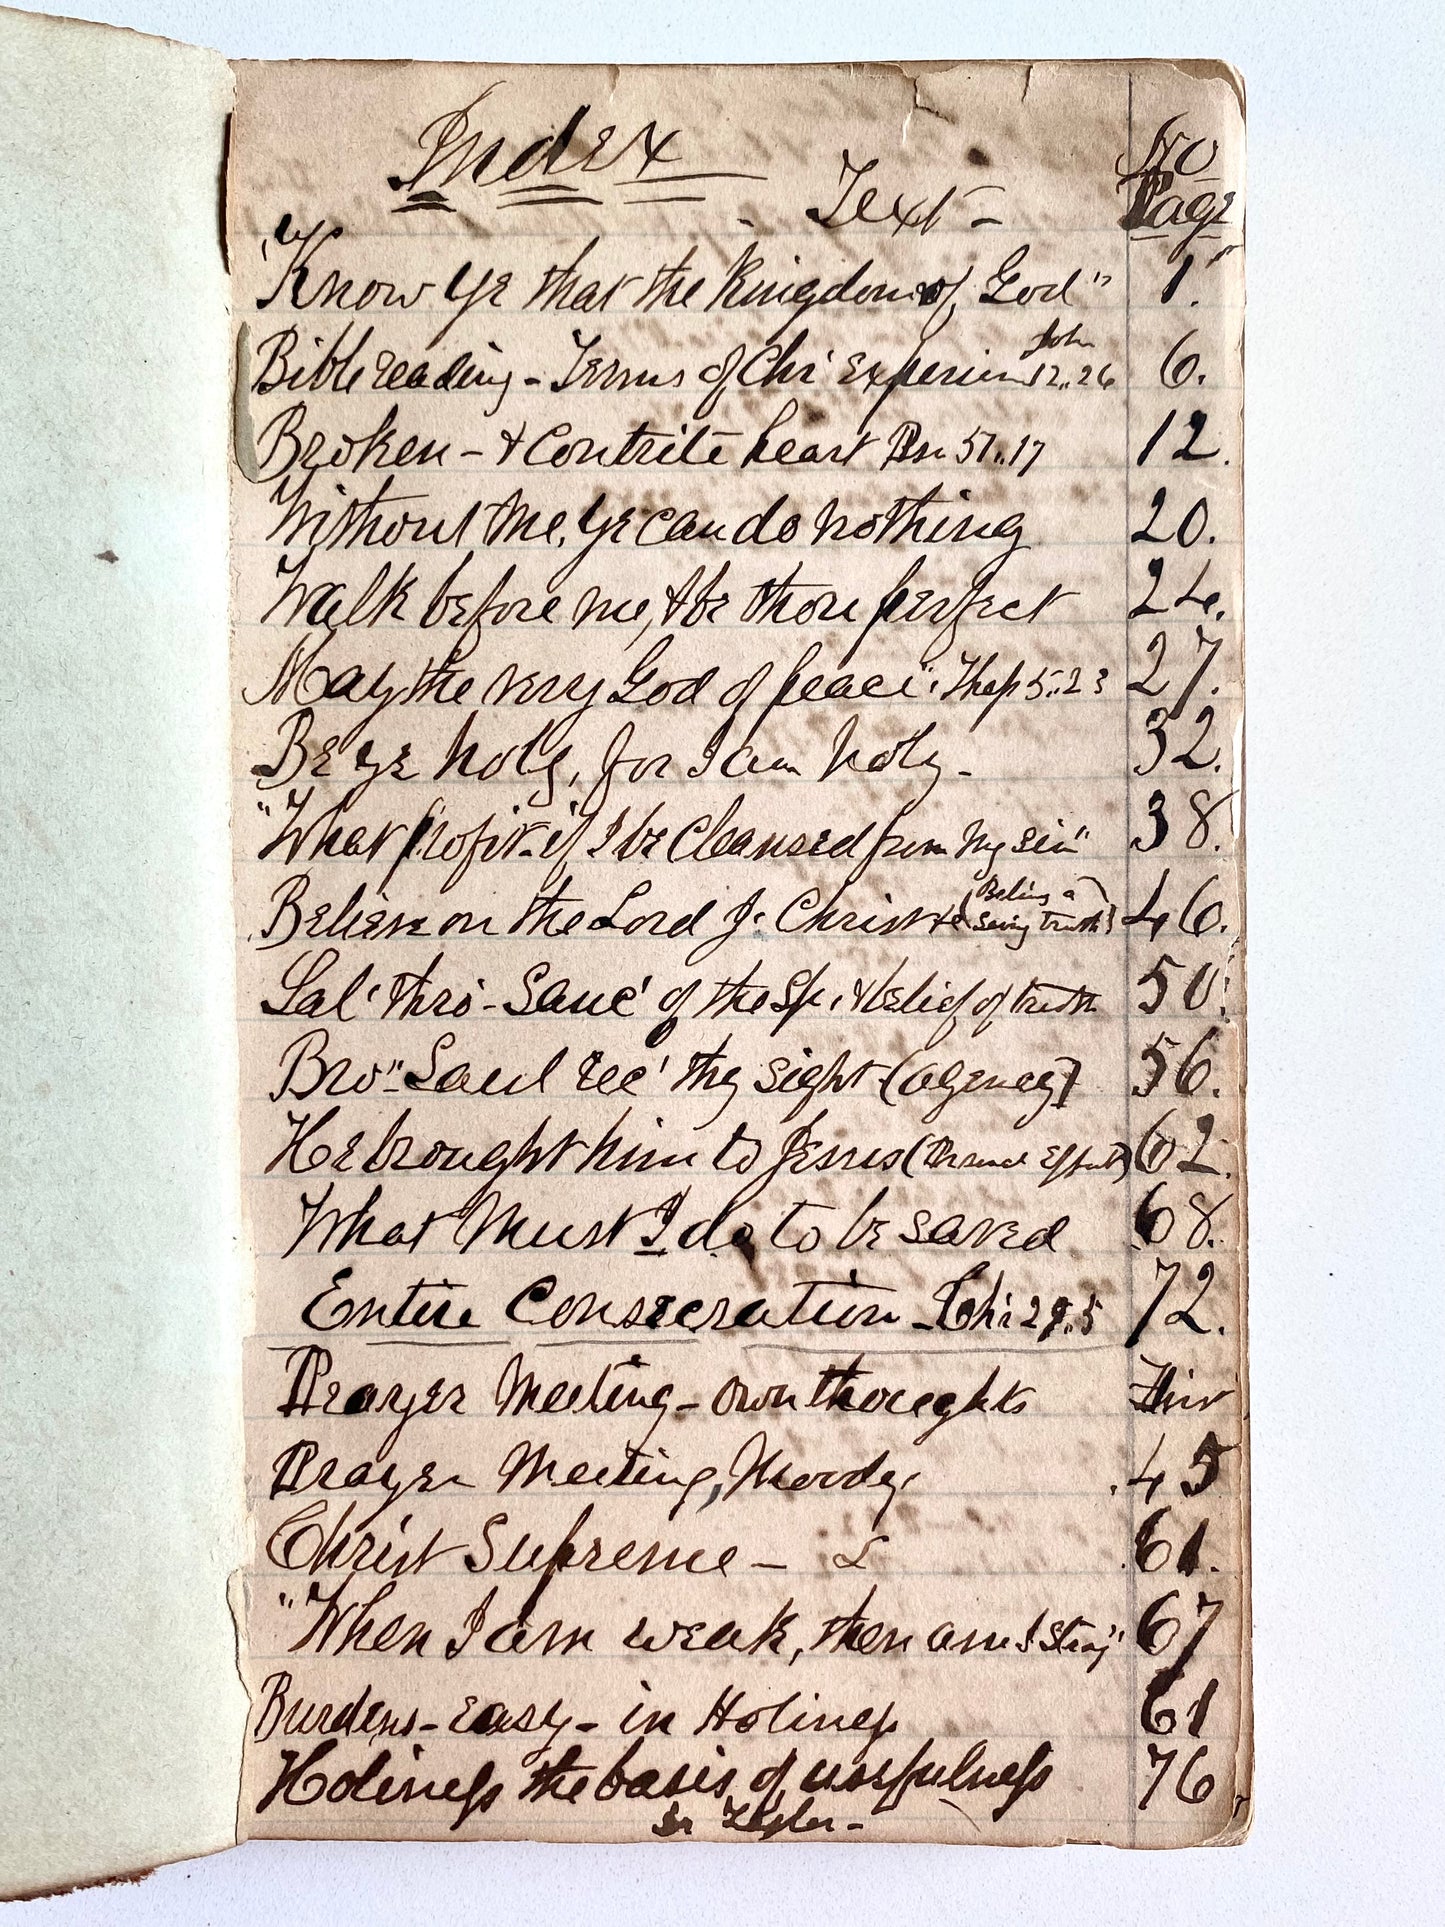 Index
No
Text - Page
"Know Ye that the Kingdom of God" 1.
Bible reading - Terms of Chr' Experien John 12..26 6.
Broken - & Contrite heart Psa 51..17 12.
Without Me, Ye can do nothing 20.
Walk before me, & be thou perfect 24.
May the very God of peace". Thess 5..23 27.
Be ye holy, for I am holy - 32.
"What profit - if I be Cleansed from my sin" 38.
Believe on the Lord J. Christ &c (Beling a Saving truth) 46.
Sal' thro - Sanc' of the Sp. & belief of truth 50.
Bro" Saul rec' thy sight - (agency) 56.
He brought him to Jesus ( Effort) 62.
What Must I do to be saved 68.
Entire Consecration - Chr 29..5 72.
Prayer Meeting - own thoughts
Prayer Meeting, Moody. 45
Christ Supreme - 61.
"When I am weak, then am I strong" 67
Burdens - easy - in Holiness 61
Holiness the basis of usefulness 76